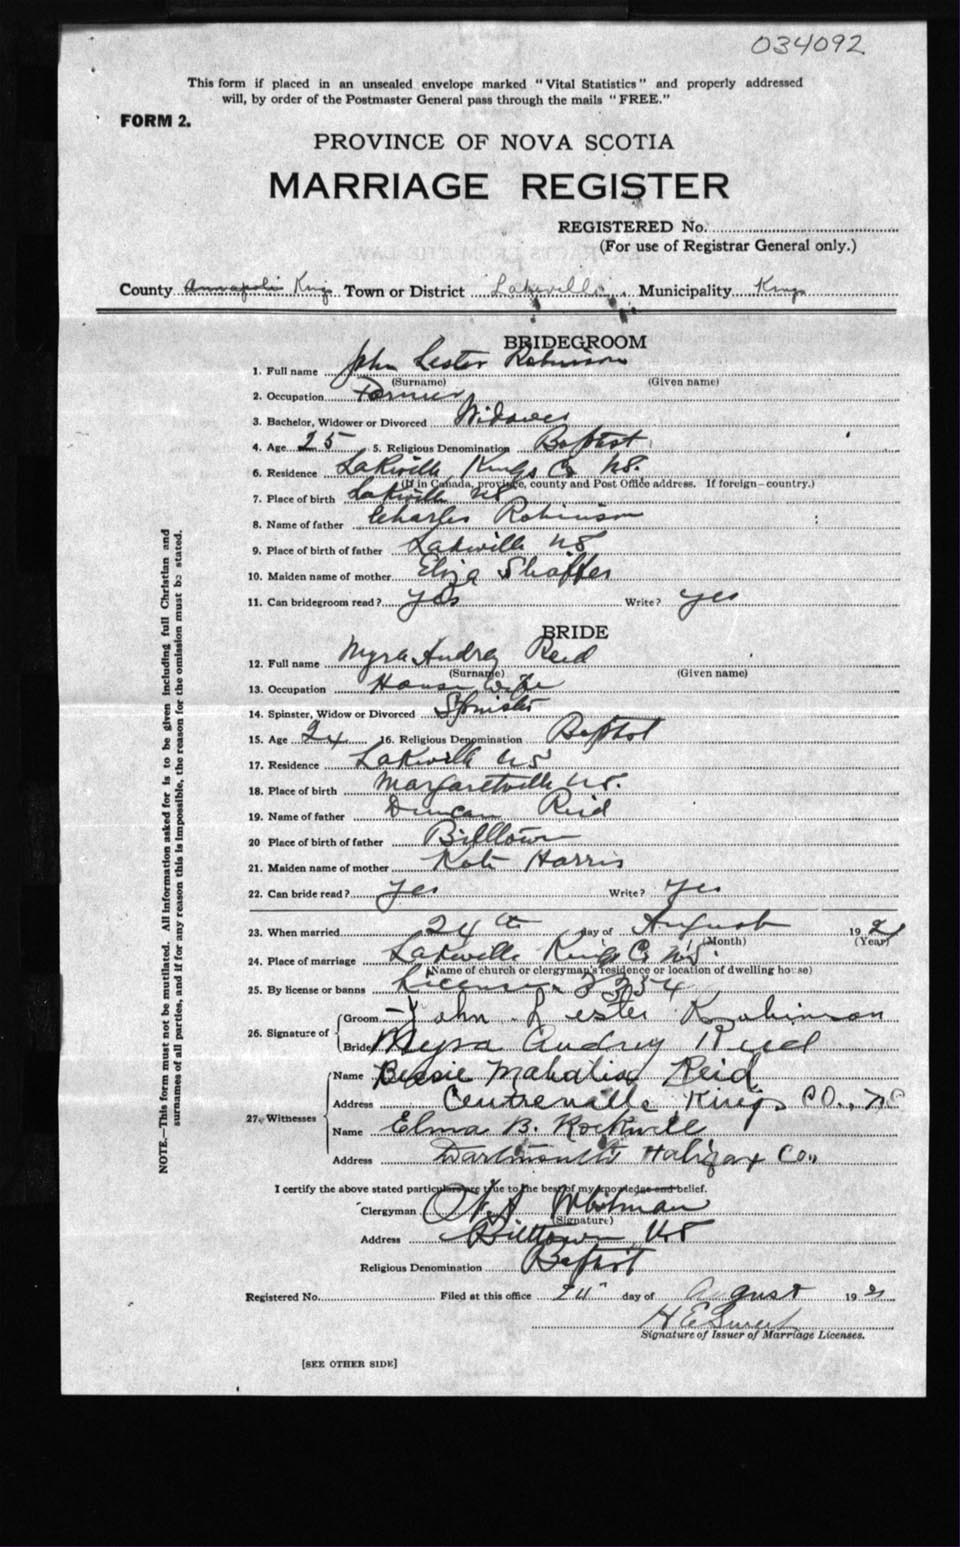 034092
This form if placed in an unsealed envelope marked "Vital Statistics" and properly addressed
will, by order of the Postmaster General pass through the mails "FREE."
FORM 2.
PROVINCE OF NOVA SCOTIA
MARRIAGE REGISTER
REGISTERED No.
(For use of Registrar General only.)
County Annapolis Kings Town or District Lakeville Municipality Kings
BRIDEGROOM
1. Full name John Lester Robinson
(Surname) (Given name)
2. Occupation Farmer
3. Bachelor, Widower or Divorced Widower
4. Age 25 5. Religious Denomination Baptist
6. Residence Lakeville Kings Co NS.
(If in Canada, province, county and Post Office address. If foreign—country.)
7. Place of birth Lakeville NS
8. Name of father Charles Robinson
9. Place of birth of father Lakeville NS
10. Maiden name of mother Eliza Shaffer
11. Can bridegroom read? yes Write? yes
BRIDE
12. Full name Myra Audrey Reid
(Surname) (Given name)
13. Occupation House wife
14. Spinster, Widow or Divorced Spinster
15. Age 24 16. Religious Denomination Baptist
17. Residence Lakeville NS
18. Place of birth Margaretville NS.
19. Name of father Duncan Reid
20 Place of birth of father Billtown
21. Maiden name of mother Kate Harris
22. Can bride read? yes Write? yes
23. When married 24th day of August 192
(Month) (Year)
24. Place of marriage Lakeville Kings Co N.S.
(Name of church or clergyman's residence or location of dwelling house)
25. By license or banns License 3354
26. Signature of Groom John Lester Robinson
Bride Myra Audrey Reid
27. Witnesses Name Bessie Mahalia Reid
Address Centreville Kings Co., N.S
Name Elma B. Rockwell
Address Dartmouth Halifax Co.,
I certify the above stated particulars are true to the best of my knowledge and belief.
Clergyman
(Signature)
Address Billtown NS
Religious Denomination Baptist
Registered No. Filed at this office 24" day of August 192
H E
Signature of Issuer of Marriage Licenses.
[SEE OTHER SIDE]
NOTE.—This form must not be mutilated. All information asked for is to be given including full Christian and
surnames of all parties, and if for any reason this is impossible, the reason for the omission must be stated.